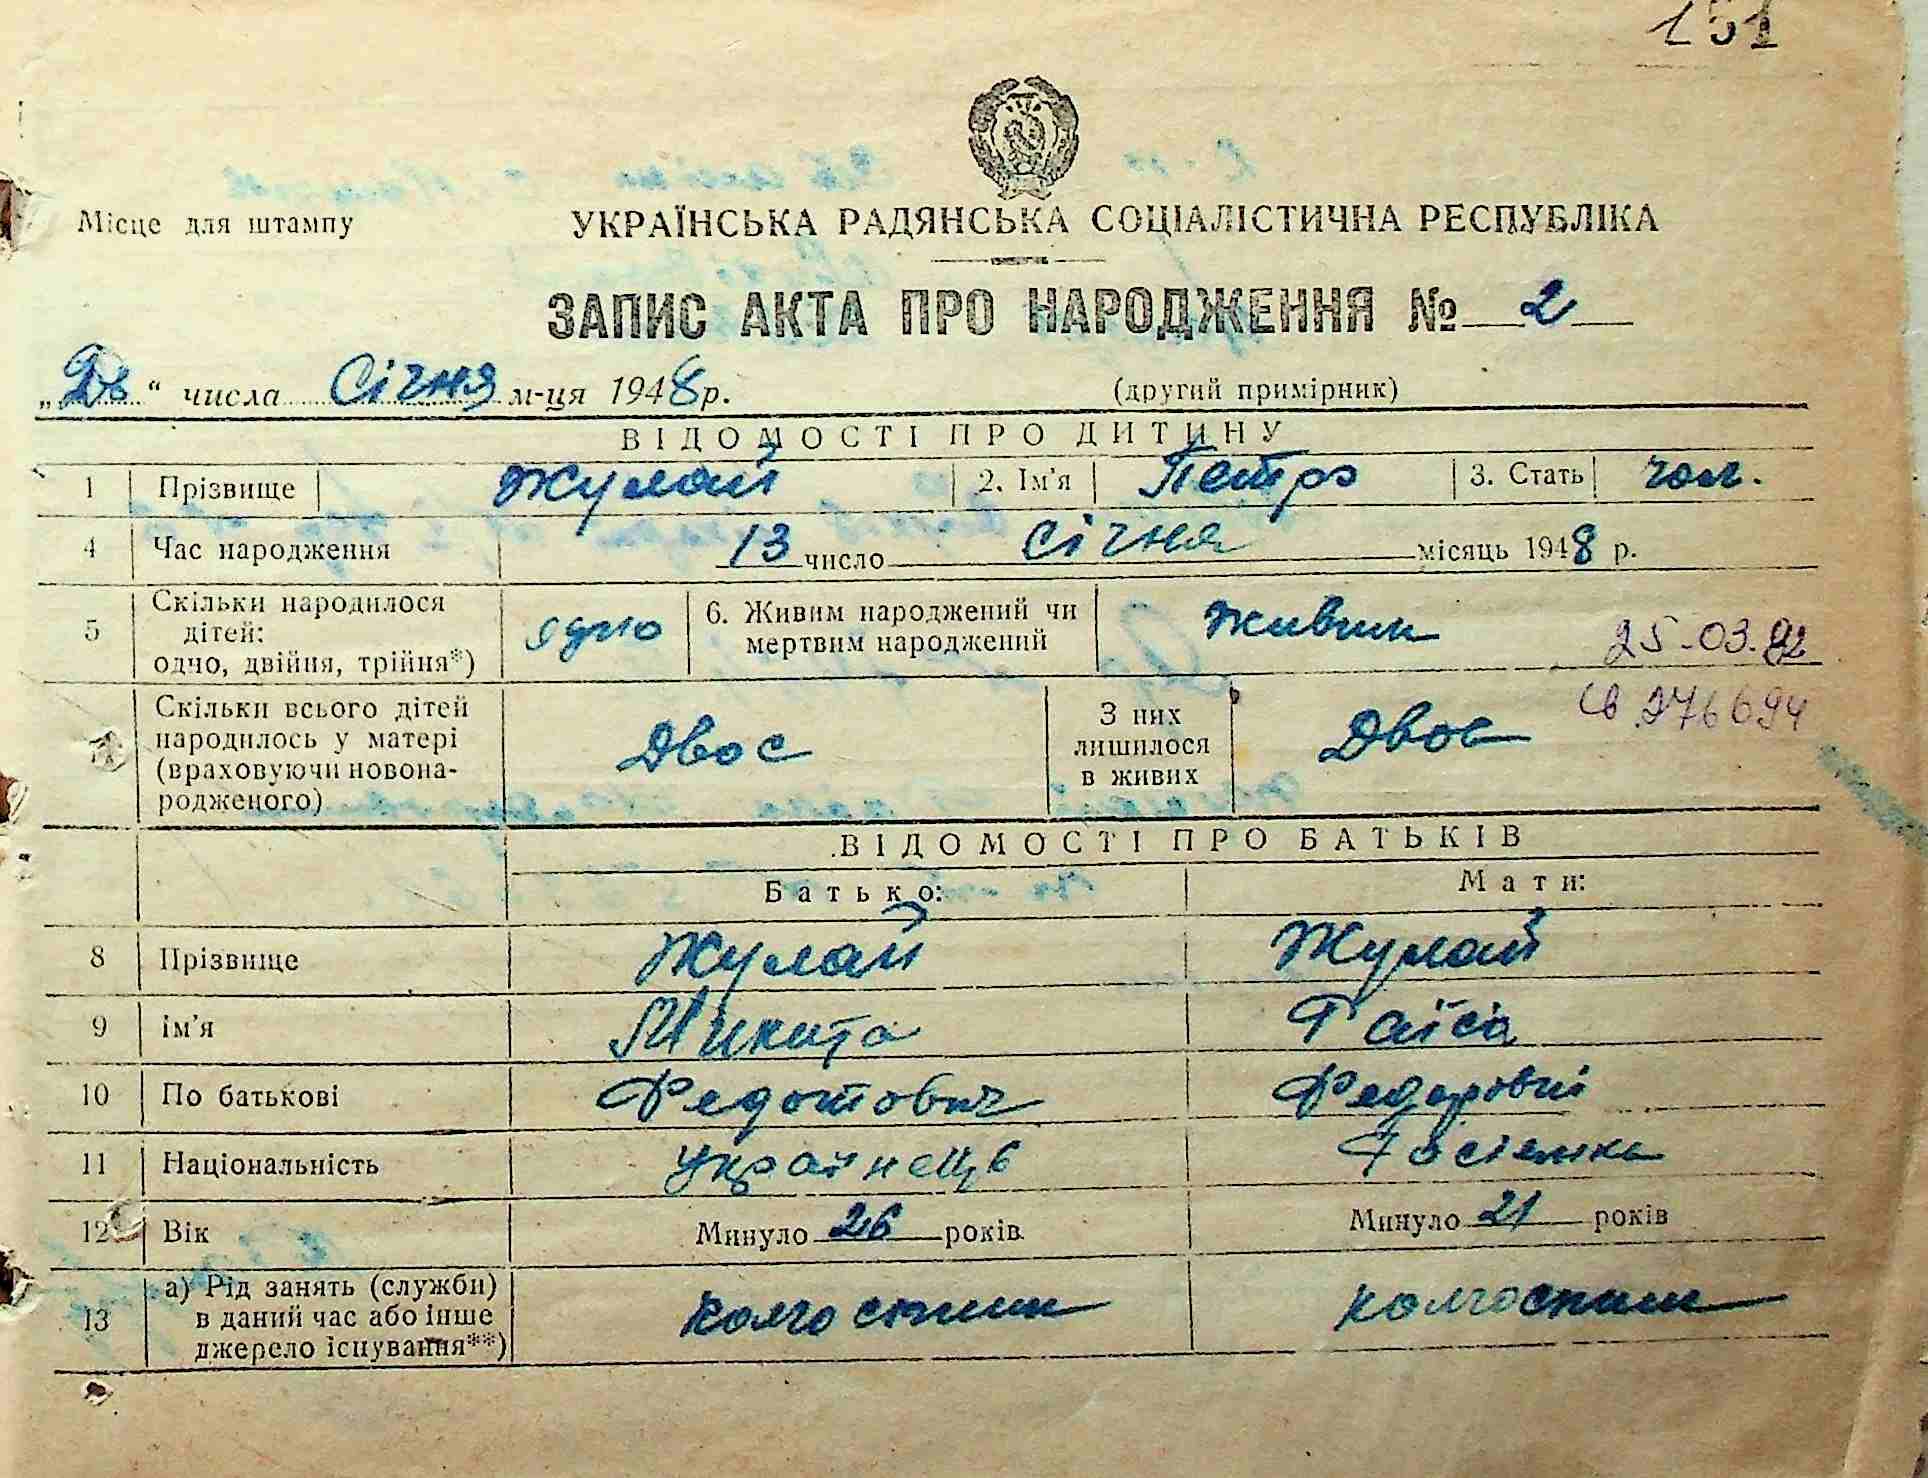 151
Місце для штампу
УКРАЇНСЬКА РАДЯНСЬКА СОЦІАЛІСТИЧНА РЕСПУБЛІКА
ЗАПИС АКТА ПРО НАРОДЖЕННЯ № 2
„ “ числа Січня м-ця 1948 р.
(другий примірник)
ВІДОМОСТІ ПРО ДИТИНУ
1 Прізвище Жулай 2. Ім'я Петро 3. Стать чол.
4 Час народження 13 число Січня місяць 1948 р.
5 Скільки народилося дітей: одно, двійня, трійня*) одно 6. Живим народжений чи мертвим народжений живим
25-03.92
7 Скільки всього дітей народилось у матері (враховуючи новона-родженого) Двоє З них лишилося в живих Двоє
св 276694
ВІДОМОСТІ ПРО БАТЬКІВ
Батько: Мати:
8 Прізвище Жулай Жулай
9 ім'я Микита Раїса
10 По батькові Федотович
11 Національність Українець
12 Вік Минуло 26 років Минуло 21 років
13 а) Рід занять (служби) в даний час або інше джерело існування**) колгоспник колгоспник